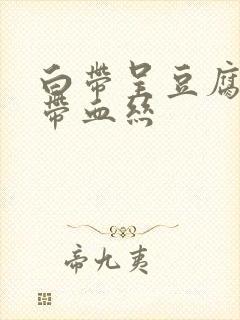 白帶呈豆腐
帶血絲
帝九夷